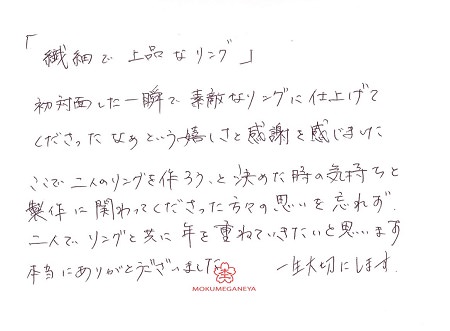 「繊細で上品なリング」
初対面した一瞬で素敵なリングに仕上げて
くださったなぁという嬉しさと感謝を感じました
ここで二人のリングを作ろう、と決めた時の気持ちと
製作に関わってくださった方々の思いを忘れず、
二人でリングと共に年を重ねていきたいと思います
本当にありがとうございました 一生大切にします。
MOKUMEGANEYA